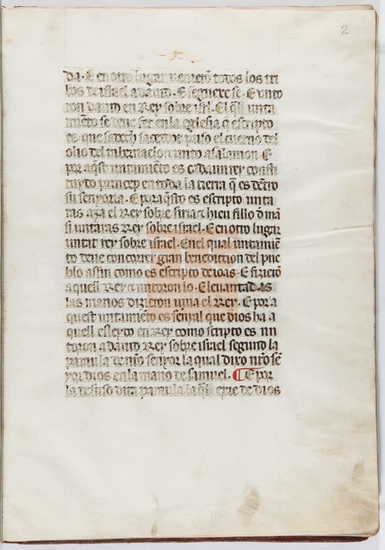 2
da · E en otro lugar venierō todos los tri
bos de israel a dauid · E seguese · E vnto
ron dauid en Rey sobre isrl · El q̄l vnta
miēto se deue fer en la eglesia q̄ escripto
es · que sadoch sacerdote priso el cuerno del
olio del tabernaclo ⁊ unto a salamon · E
por aq̄st untamiēto es cada un rey consti
tuydo princep en toda la tierra q̄ es dētro
su senyoria · E por aq̄sto es escripto unta
ras aza el Rey sobre siria ⁊ hieu fillo d̄ nam
si untaras Rey sobre israel · E en otro lugar
untat rey sobre israel · En el qual untamiēt
to deue concorrer gran benediction del pue
blo assin como es escripto de ioas · E fizierō
aquell Rey ⁊ untoron lo · E leuantadas
las manos dixieron viua el Rey · E por a
quest untamiēto es senyal que dios ha a
quell esleyto en Rey como scripto es un
toron a dauid Rey sobre israel segunt la
paraula de nr̄o senyor la qual dixo nr̄o sē
yor dios en la mano de samuel · ¶ E por
la desuso dita paraula la q̄l de dios